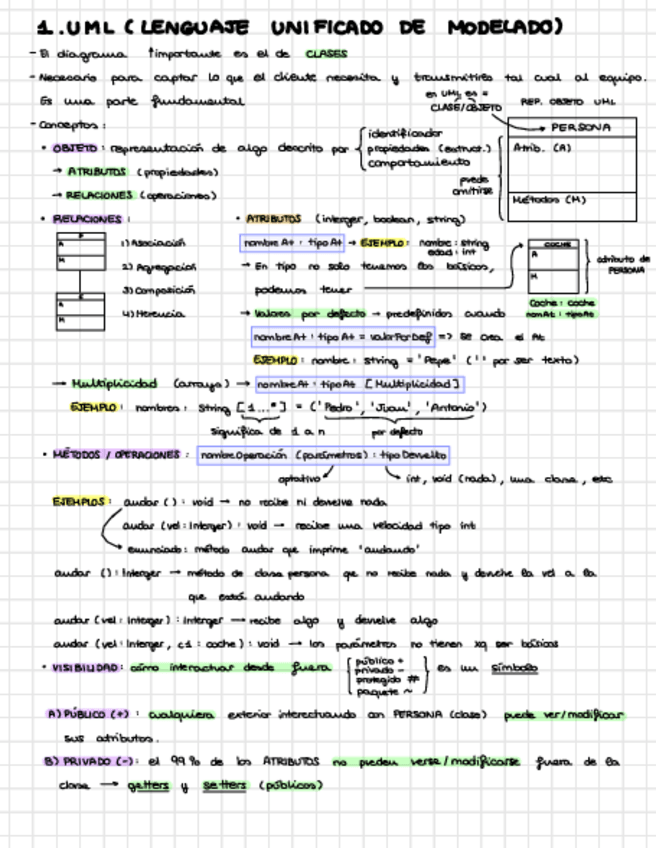 1.UML (LENGUAJE UNIFICADO DE MODELADO)
- El diagrama ↑importante es el de CLASES
- Necesario para captar lo que el cliente necesita y transmitirlo tal cual al equipo.
Es una parte fundamental
en UML es = CLASE/OBJETO
REP. OBJETO UML
- Conceptos:
• OBJETO: representación de algo descrito por
identificador
propiedades (estruct.)
comportamiento
puede omitirse
PERSONA
Atrib. (A)
Métodos (M)
→ ATRIBUTOS (propiedades)
→ RELACIONES (operaciones)
• RELACIONES:
P
A
M
C
A
M
1) Asociación
2) Agregación
3) Composición
4) Herencia
• ATRIBUTOS (interger, boolean, string)
nombre At : tipo At → EJEMPLO: nombre : string
edad : int
→ En tipo no solo tenemos los básicos,
podemos tener
COCHE
A
M
atributo de PERSONA
Coche : coche
nom At : tipo At
→ Valores por defecto → predefinidos cuando
nombre At : tipo At = valorPorDef => se crea el At
EJEMPLO: nombre : string = 'Pepe' ('' por ser texto)
→ Multiplicidad (arrays) → nombre At : tipo At [Multiplicidad]
EJEMPLO: nombres: String [1...*] = ('Pedro', 'Juan', 'Antonio')
significa de 1 a n
por defecto
• MÉTODOS / OPERACIONES: nombreOperación (parámetros) : tipo Devuelto
optativo
int, void (nada), una clase, etc
EJEMPLOS: andar () : void → no recibe ni devuelve nada
andar (vel : Interger) : void → recibe una velocidad tipo int
enunciado: método andar que imprime 'andando'
andar () : Interger → método de clase persona que no recibe nada y devuelve la vel a la
que está andando
andar (vel : Interger) : Interger → recibe algo y devuelve algo
andar (vel : Interger, c1 : coche) : void → los parámetros no tienen xq ser básicos
• VISIBILIDAD: cómo interactuar desde fuera
público +
privado -
protegido #
paquete ~
es un símbolo
A) PÚBLICO (+) : cualquiera exterior interectuando con PERSONA (clase) puede ver/modificar
sus atributos.
B) PRIVADO (-): el 99% de los ATRIBUTOS no pueden verse/modificarse fuera de la
clase → getters y setters (públicos)